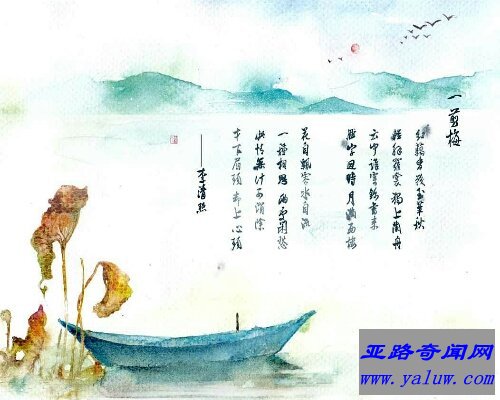 一剪梅
红藕香残玉簟秋
轻解罗裳 独上兰舟
云中谁寄锦书来
雁字回时 月满西楼
花自飘零水自流
一种相思 两处闲愁
此情無计可消除
才下眉头 却上心头
——李清照
亚路奇闻网
www.yaluw.com